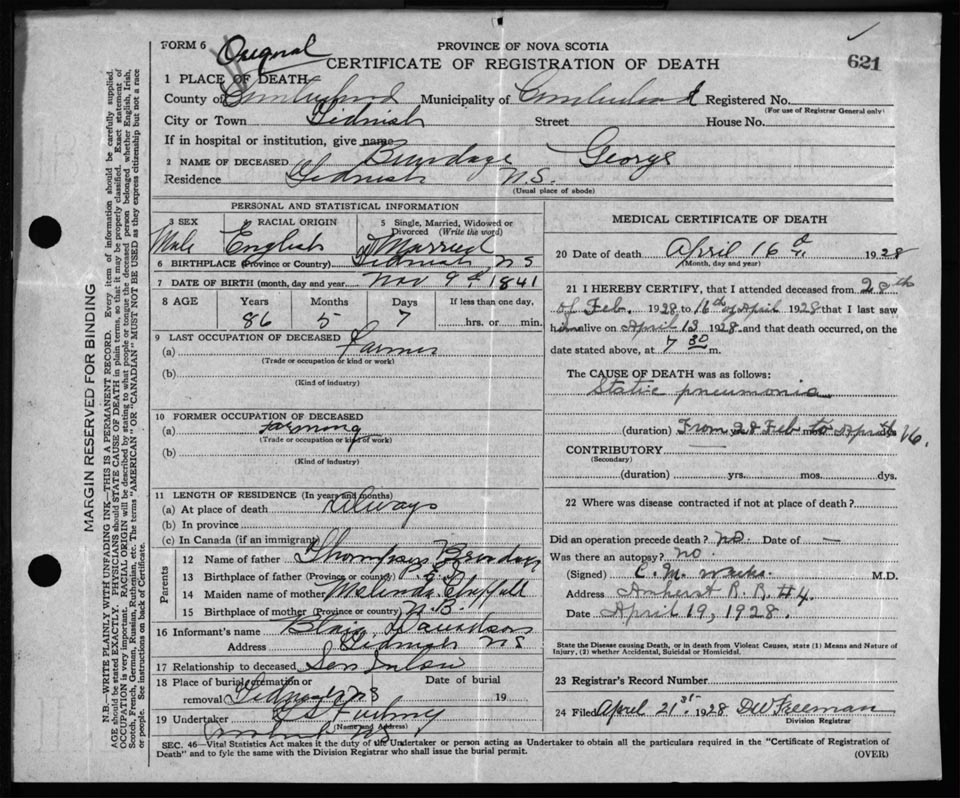 FORM 6 Original PROVINCE OF NOVA SCOTIA
CERTIFICATE OF REGISTRATION OF DEATH 621
1 PLACE OF DEATH
County of Cumberland Municipality of Cumberland Registered No.
(For use of Registrar General only)
City or Town Tidnish Street House No.
If in hospital or institution, give name
2 NAME OF DECEASED Brundage George
Residence Tidnish N.S.
(Usual place of abode)
PERSONAL AND STATISTICAL INFORMATION
3 SEX RACIAL ORIGIN 5 Single, Married, Widowed or Divorced (Write the word)
Male English Married
6 BIRTHPLACE (Province or Country) Tidnish N S
7 DATE OF BIRTH (month, day and year) Nov 9th 1841
8 AGE Years Months Days If less than one day,
86 5 7 hrs. or min.
9 LAST OCCUPATION OF DECEASED
(a) Farmer
(Trade or occupation or kind or work)
(b)
(Kind of industry)
10 FORMER OCCUPATION OF DECEASED
(a) Farming
(Trade or occupation or kind of work)
(b)
(Kind of industry)
11 LENGTH OF RESIDENCE (In years and months)
(a) At place of death Always
(b) In province
(c) In Canada (if an immigrant)
Parents
12 Name of father Thompson Brundage
13 Birthplace of father (Province or country)
14 Maiden name of mother Melinda
15 Birthplace of mother (Province or country) N.B.
16 Informant's name Blair Davidson
Address Tidnish N S
17 Relationship to deceased Son Inlaw
18 Place of burial, cremation or Date of burial
removal Tidnish N S 19
19 Undertaker
(Name and Address)
N.S.
MEDICAL CERTIFICATE OF DEATH
20 Date of death April 16th 1928
(Month, day and year)
21 I HEREBY CERTIFY, that I attended deceased from 28th
of Feb. 1928 to 16th of April 1928 that I last saw
him alive on April 13 1928 and that death occurred, on the
date stated above, at 7 30 m.
The CAUSE OF DEATH was as follows:
Static pneumonia
(duration) From 28 Feb. to April 16.
CONTRIBUTORY
(Secondary)
(duration) yrs. mos. dys.
22 Where was disease contracted if not at place of death?
Did an operation precede death? no. Date of —
Was there an autopsy? no.
(Signed) C. M. M.D.
Address Amherst R. R. #4.
Date April 19, 1928.
State the Disease causing Death, or in death from Violent Causes, state (1) Means and Nature of
Injury, (2) whether Accidental, Suicidal or Homicidal.
23 Registrar's Record Number
24 Filed April 21st 1928 DW Freeman
Division Registrar
SEC. 46—Vital Statistics Act makes it the duty of the Undertaker or person acting as Undertaker to obtain all the particulars required in the "Certificate of Registration of
Death" and to file the same with the Division Registrar who shall issue the burial permit. (OVER)
MARGIN RESERVED FOR BINDING
N.B.—WRITE PLAINLY WITH UNFADING INK—THIS IS A PERMANENT RECORD. Every item of information should be carefully supplied.
AGE should be stated EXACTLY. PHYSICIANS should STATE CAUSE OF DEATH in plain terms, so that it may be properly classified. Exact statement of
OCCUPATION is very important. RACIAL ORIGIN will be described by stating to what people or tongue the deceased person belonged whether English, Irish,
Scotch, French, German, Russian, Ruthenian, etc. The terms "AMERICAN" OR "CANADIAN" MUST NOT BE USED as they express citizenship but not a race
or people. See instructions on back of Certificate.